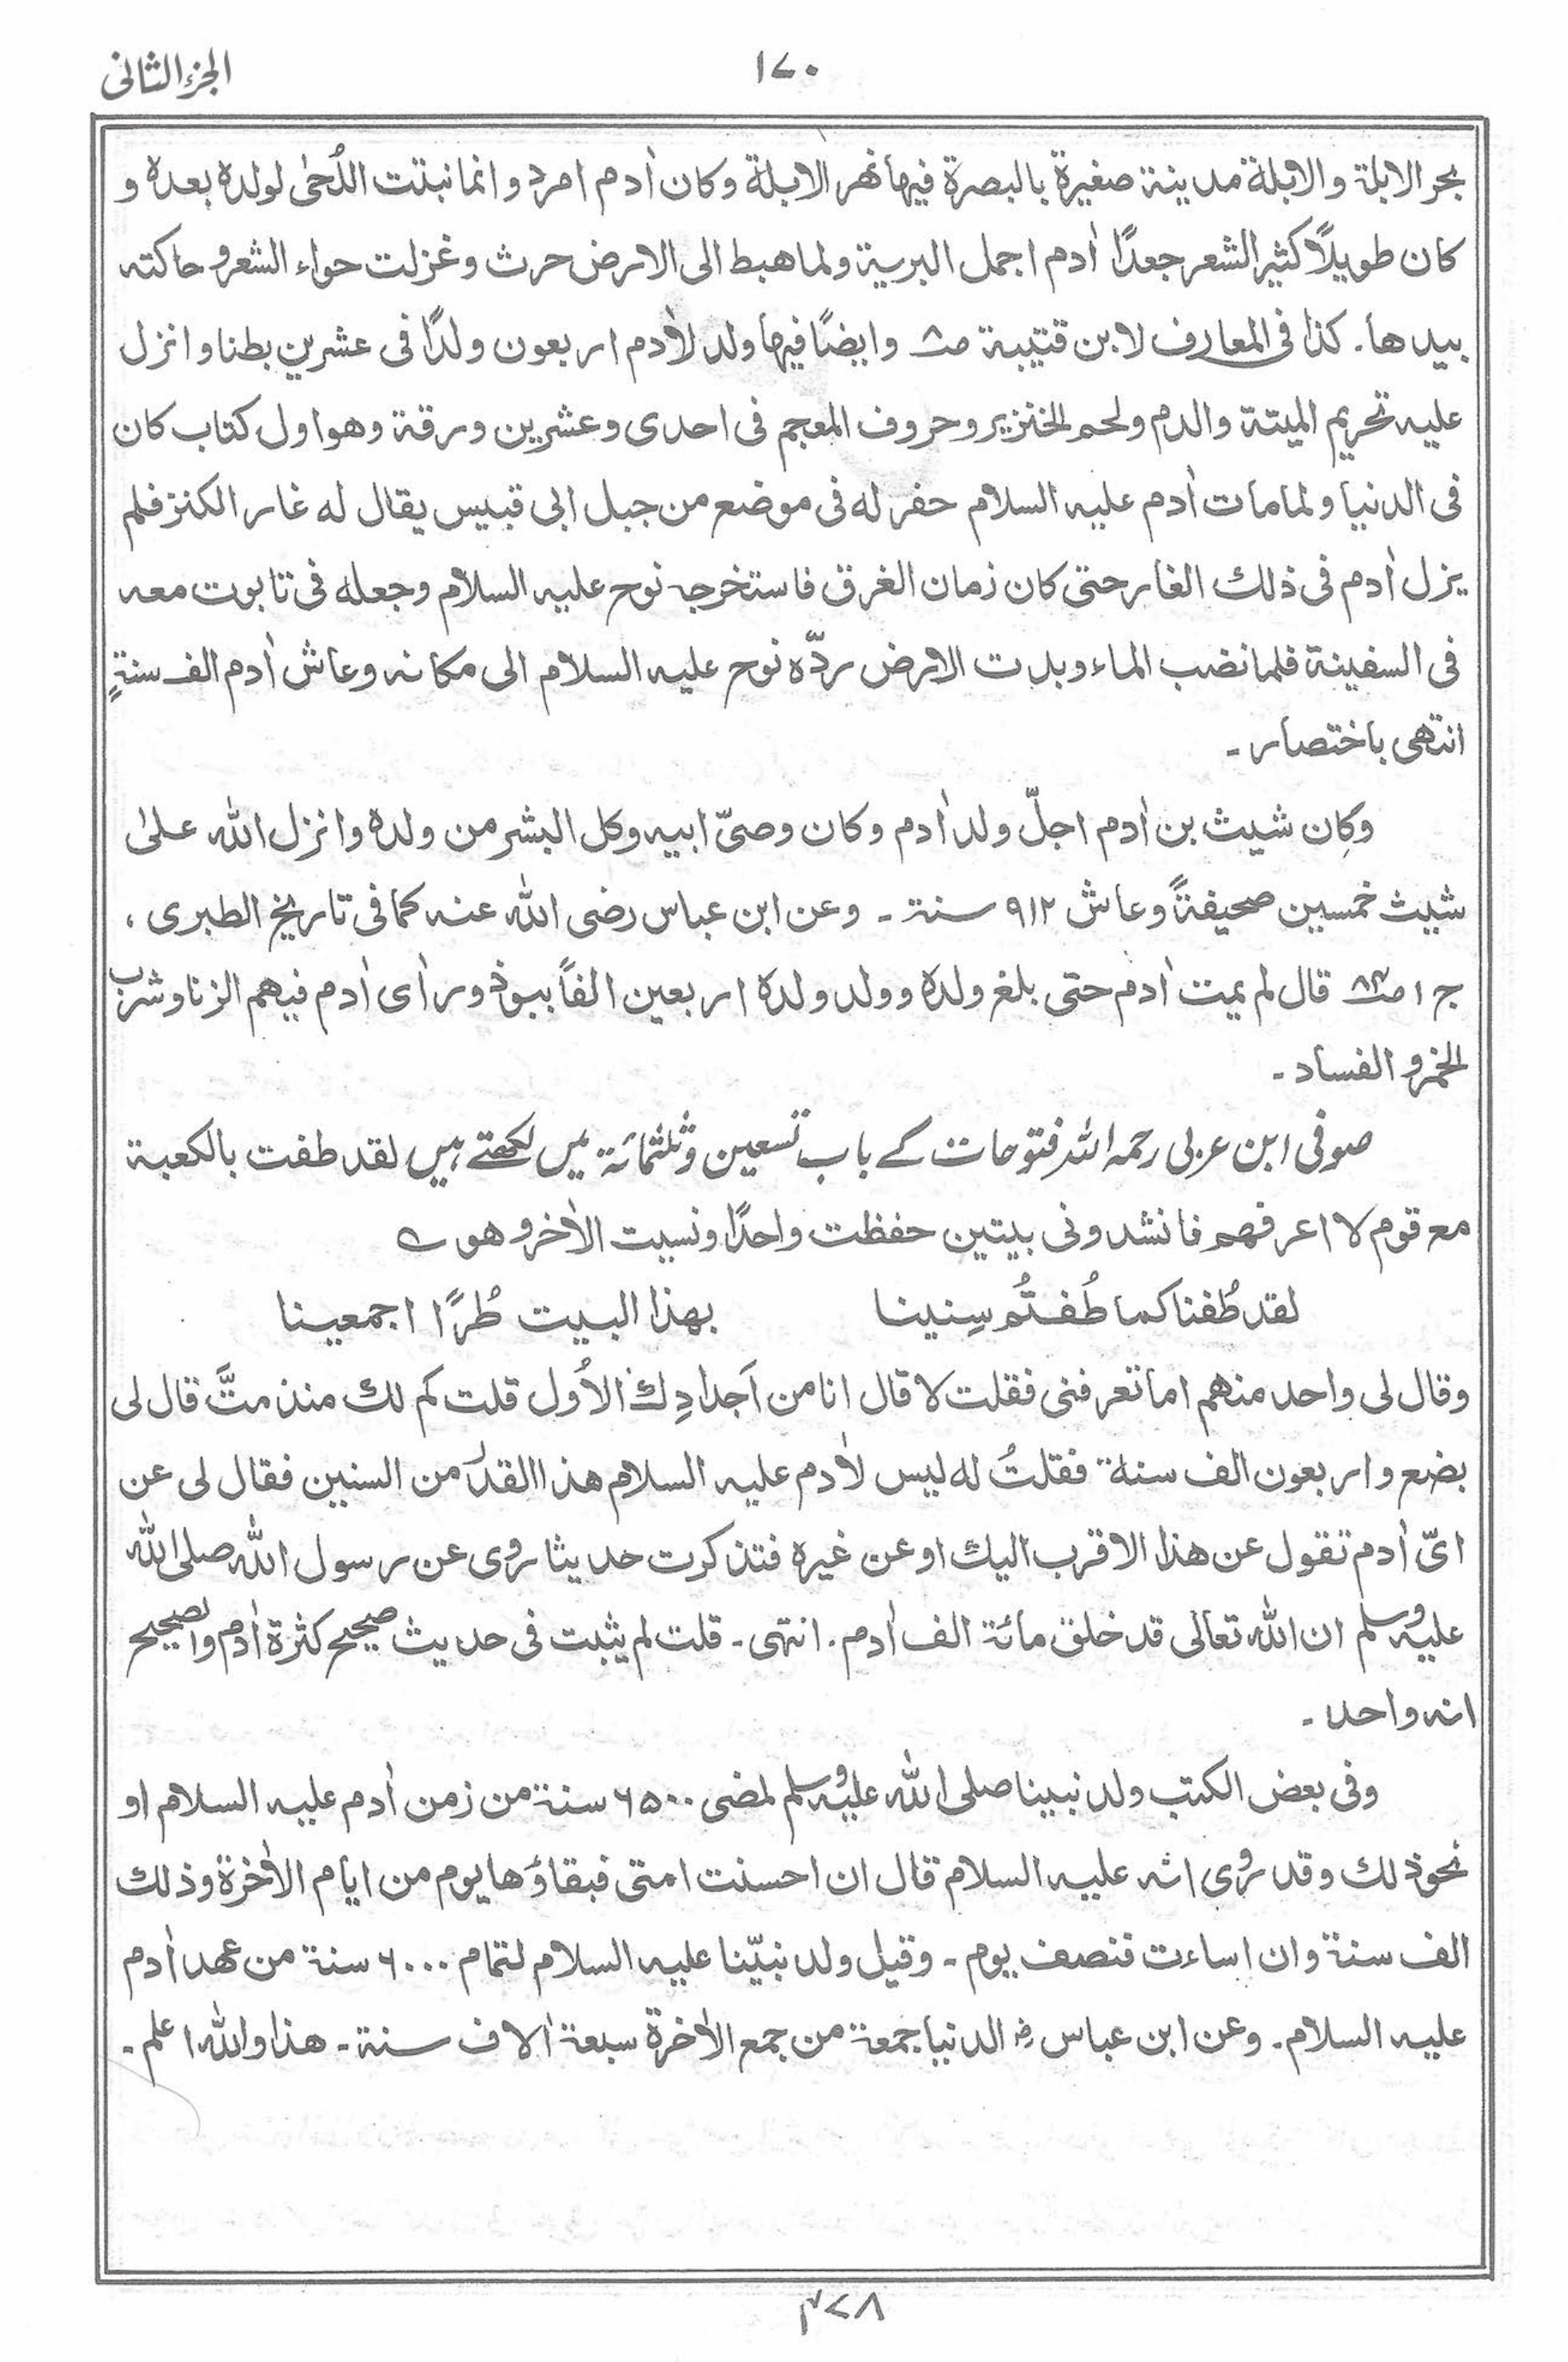 ١٧٠
الجزء الثانی
بحر الابلة والابلة مدینة صغیرة بالبصرة فیها نهر الابلة وکان اٰدم امرد وانما نبتت اللُحیٰ لولدہ بعدہ و
کان طویلًا کثیر الشعر جعدًا اٰدم اجمل البریة ولما هبط الی الارض حرث وغزلت حواء الشعر و حاکته
بیدها۔ کذا فی المعارف لابن قتیبة ص۸ وایضًا فیها ولد لاٰدم اربعون ولدًا فی عشرین بطنا وانزل
علیه تحریم المیتة والدم ولحم الخنزیر وحروف المعجم فی احدی وعشرین ورقة وهو اول کتاب کان
فی الدنیا ولما مات اٰدم علیه السلام حفر له فی موضع من جبل ابی قبیس یقال له غار الکنز فلم
یزل اٰدم فی ذلك الغار حتی کان زمان الغرق فاستخرجه نوح علیه السلام وجعله فی تابوت معه
فی السفینة فلما نضب الماء وبدت الارض ردّہ نوح علیه السلام الی مکانه وعاش اٰدم الف سنةٍ
انتهی باختصار۔
وکان شیث بن اٰدم اجلّ ولد اٰدم وکان وصیّ ابیه وکل البشر من ولدہ وانزل الله علیٰ
شیث خمسین صحیفةً وعاش ۹۱۲ سنة۔ وعن ابن عباس رضی الله عنه کما فی تاریخ الطبری ،
ج ۱ ص۸۳ قال لم یمت اٰدم حتی بلغ ولدہ وولد ولدہ اربعین الفًا ببوذ ورأی اٰدم فیهم الزنا وشرب
الخمر و الفساد۔
صوفی ابن عربی رحمہ اللہ فتوحات کے باب تسعین وثلثمائة میں لکھتے ہیں لقد طفت بالکعبة
مع قوم لا اعرفهم فانشدونی بیتین حفظت واحدًا ونسیت الاٰخر وهو ؎
لقد طُفنا کما طُفتُم سِنینا بهذا البیت طُرًّا اجمعینا
وقال لی واحد منهم اما تعرفنی فقلت لا قال انا من اَجدادِك الاُول قلت کم لك منذ متَّ قال لی
بضع واربعون الف سنة فقلتُ له لیس لاٰدم علیه السلام هذا القدر من السنین فقال لی عن
ایّ اٰدم تقول عن هذا الاقرب الیك او عن غیرہ فتذکرت حدیثا رُوی عن رسول الله صلی الله
علیه وسلم ان الله تعالی قد خلق مائة الف اٰدم۔ انتهی۔ قلت لم یثبت فی حدیث صحیح کثرة اٰدم والصحیح
انه واحد۔
وفی بعض الکتب ولد نبینا صلی الله علیه وسلم لمضی ۶۵۰۰ سنة من زمن اٰدم علیه السلام او
نحو ذلك وقد رُوی انه علیه السلام قال ان احسنت امتی فبقاؤها یوم من ایام الاٰخرة وذلك
الف سنة وان اساءت فنصف یوم۔ وقیل ولد نبیّنا علیه السلام لتمام ۶۰۰۰ سنة من عهد اٰدم
علیه السلام۔ وعن ابن عباس رضـ الدنیا جمعة من جمع الاٰخرة سبعة اٰلاف سنة۔ هذا والله اعلم۔
۳۷۸